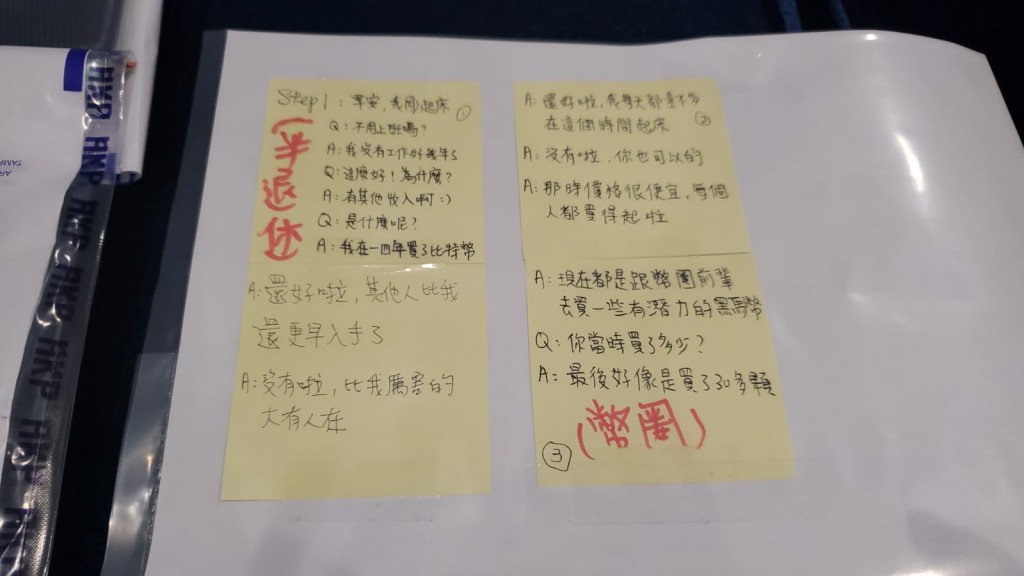 Step 1：早安，我剛起床 ①
Q：不用上班嗎？
A：我沒有工作好幾年了
Q：這麼好！為什麼？
A：有其他收入啊：)
Q：是什麼呢？
A：我在一四年買了比特幣
(半退休
A：還好啦，其他人比我
還更早入手了
A：沒有啦，比我厲害的
大有人在
A：還好啦，我每天都差不多
在這個時間起床 ②
A：沒有啦，你也可以的
A：那時價格很便宜，每個
人都買得起啦
A：現在都是跟幣圈前輩
去買一些有潛力的黑馬幣
Q：你當時買了多少？
A：最後好像是買了30多顆
(幣圈)
③
HKP HKP HKP HKP HKP HKP